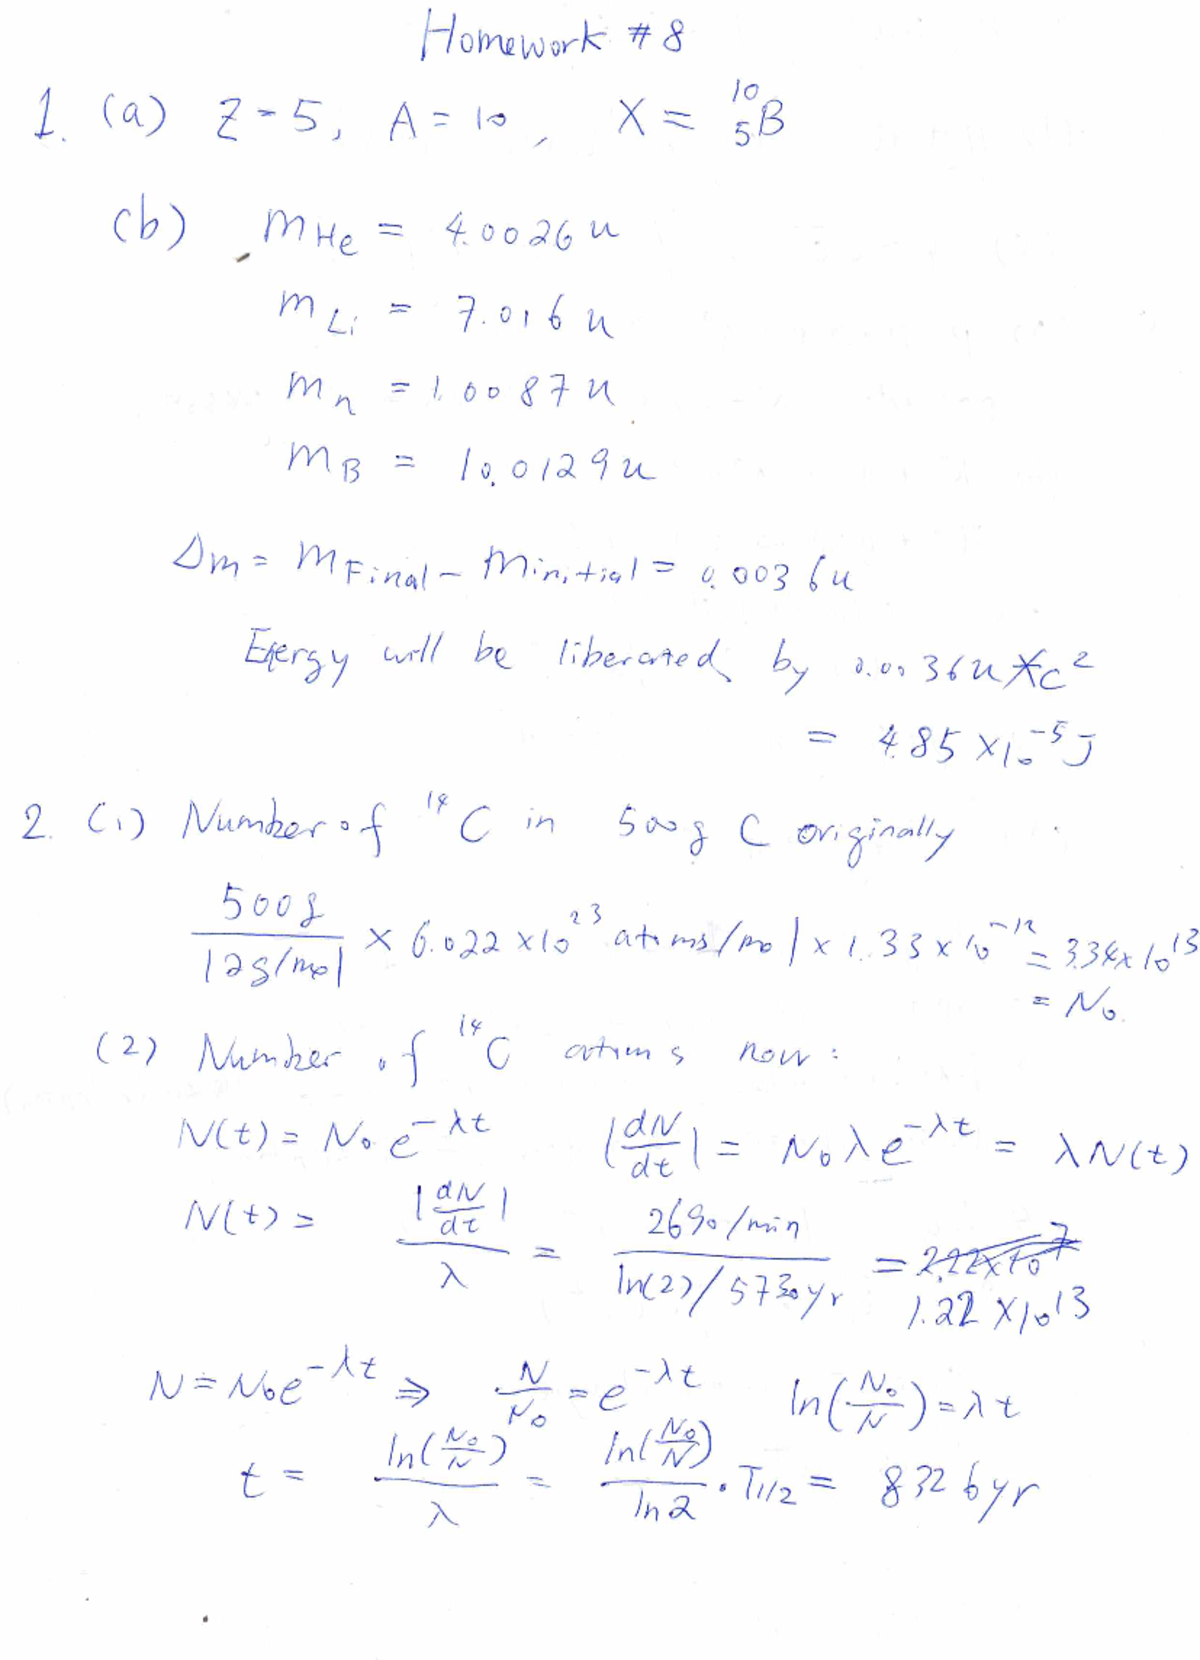 Homework #8
1. (a) Z-5, A=10, X = ¹⁰₅B
(b) mHe = 4.0026u
mLi = 7.016u
mn = 1.0087u
mB = 10.0129u
Δm = mFinal - minitial = 0.0036u
Energy will be liberated by 0.0036u*c²
= 4.85 x10⁻⁵J
2. (1) Number of ¹⁴C in 500g C originally
500g / 12g/mol x 6.022 x10²³ atoms/mol x 1.33 x 10⁻¹² = 3.34x10¹³
= No.
(2) Number of ¹⁴C atoms now:
N(t) = N₀ e^-λt |dN/dt| = N₀λe^-λt = λN(t)
N(t) = |dN/dt| / λ = 2690/min / ln(2)/5730yr = 2.22x10⁷
1.22 x10¹³
N = N₀e^-λt ⇒ N/N₀ = e^-λt ln(N₀/N) = λt
t = ln(N₀/N) / λ = ln(N₀/N) / ln2 · T1/2 = 8326yr